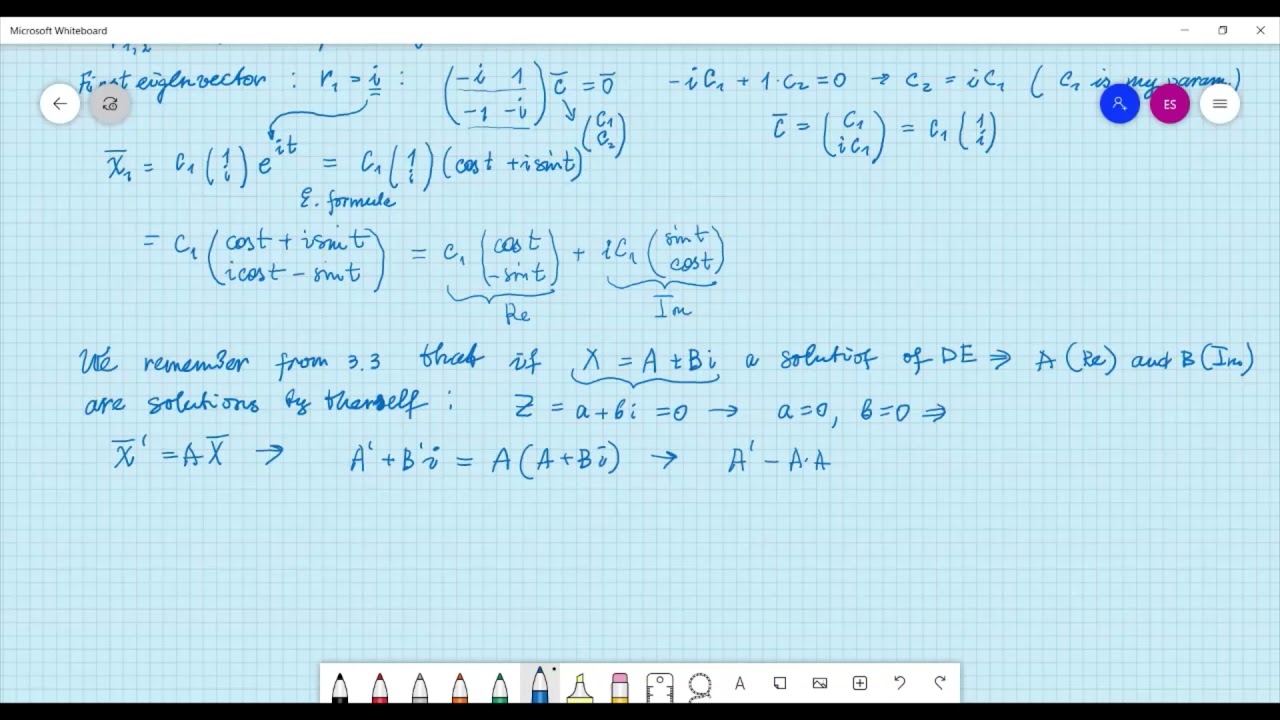 Microsoft Whiteboard
1,2
First eigenvector : r₁ = i : (-i 1 / -1 -i) c̄ = 0̄ -iC₁ + 1·C₂ = 0 → C₂ = iC₁ ( C₁ is my param.)
(C₁ / C₂) c̄ = (C₁ / iC₁) = C₁ (1 / i)
ES
x̄₁ = C₁ (1 / i) e^{it} = C₁ (1 / i) (cost + isint)
E. formule
= C₁ (cost + isint / icost - sint) = C₁ (cost / -sint) + iC₁ (sint / cost)
Re Im
We remember from 3.3 that if X = A + Bi a solution of DE ⇒ A (Re) and B (Im)
are solutions by themself : Z = a + bi = 0 → a=0, b=0 ⇒
X̄' = AX̄ → A' + B'i = A(A + Bi) → A' - A·A
A